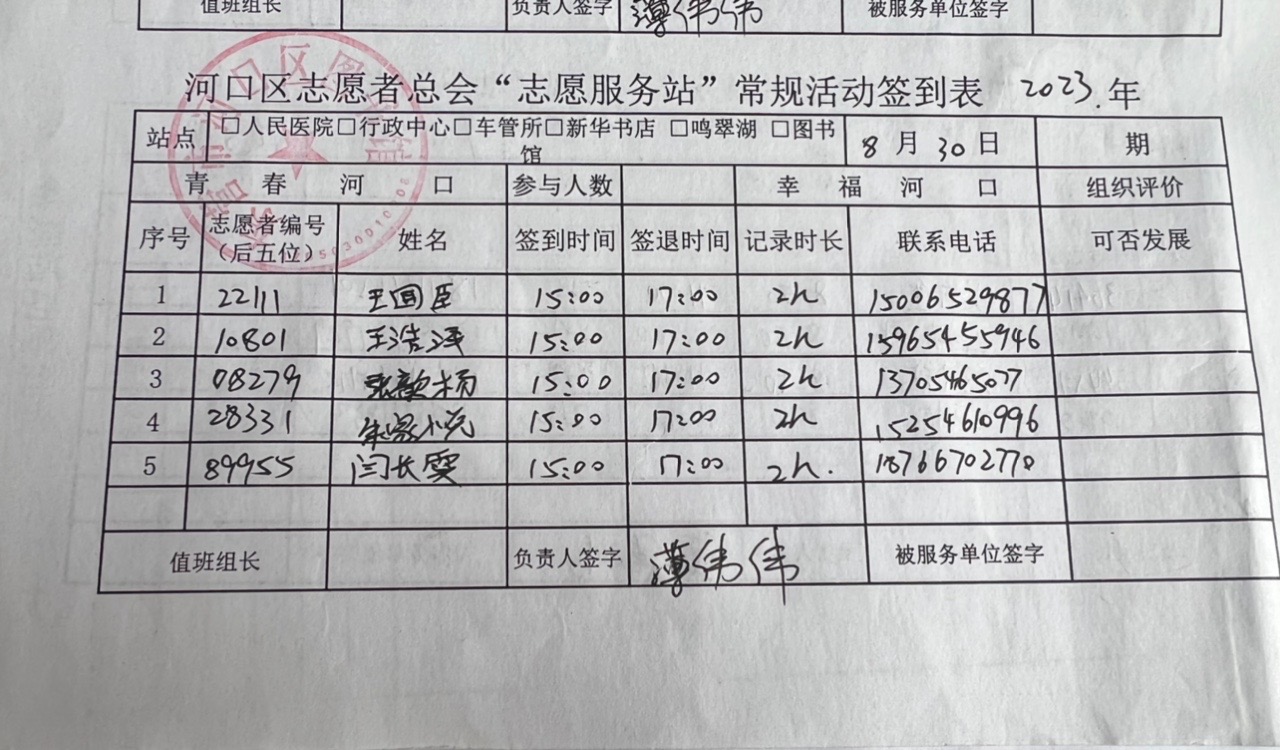 值班组长 负责人签字 薄伟伟 被服务单位签字
河口区志愿者总会“志愿服务站”常规活动签到表 2023.年
站点 □人民医院□行政中心□车管所□新华书店 □鸣翠湖 □图书馆 8月30日 期
青春河口 参与人数 幸福河口 组织评价
序号 志愿者编号(后五位) 姓名 签到时间 签退时间 记录时长 联系电话 可否发展
1 22111 王国臣 15:00 17:00 2h 15006529877
2 10801 王浩泽 15:00 17:00 2h 15965455946
3 08279 张歆杨 15:00 17:00 2h 13705465077
4 28331 15:00 17:00 2h 15254610996
5 89955 闫长雯 15:00 17:00 2h. 18766702770
值班组长 负责人签字 薄伟伟 被服务单位签字